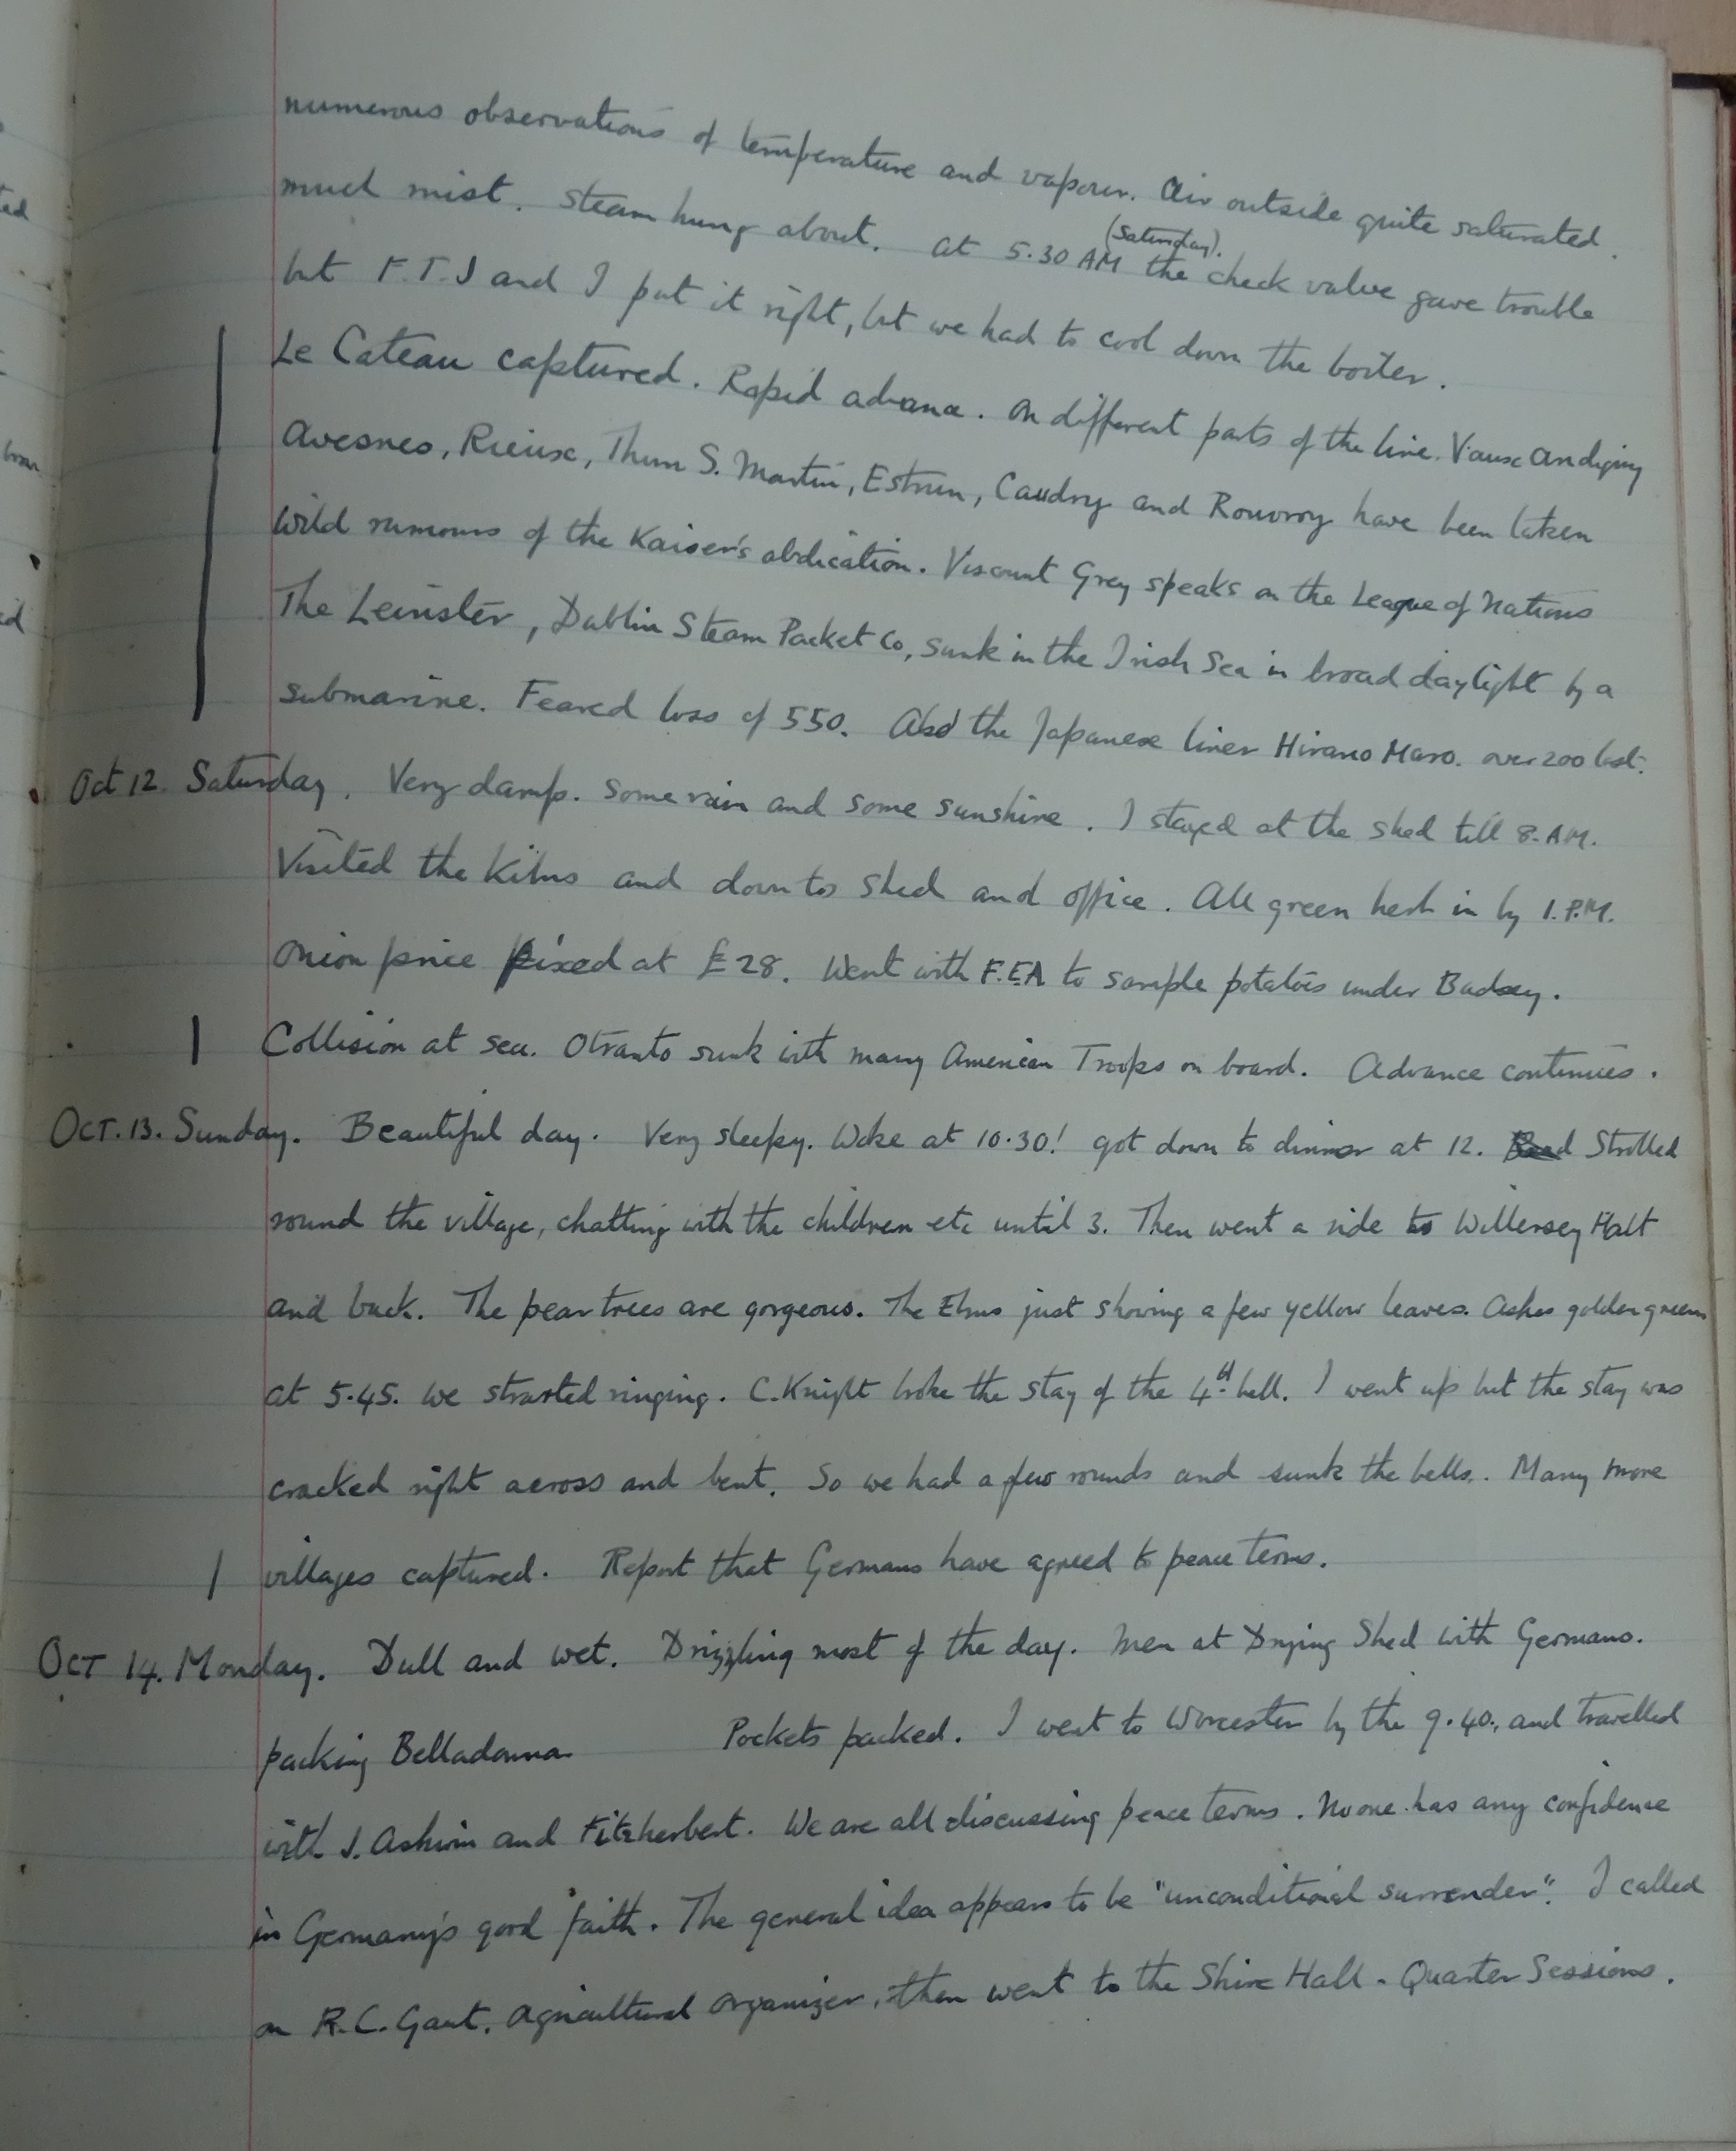 numerous observations of temperature and vapour. Air outside quite saturated.
much mist. Steam hung about. At 5.30 AM (Saturday). the check valve gave trouble
but F.T.S and I put it right, but we had to cool down the boiler.
Le Cateau captured. Rapid advance. On different parts of the line. Vaux Andigny
Avesnes, Rieux, Thun S. Martin, Estrun, Caudry and Rouvroy have been taken
Wild rumours of the Kaiser's abdication. Viscount Grey speaks on the League of Nations
The Leinster, Dublin Steam Packet Co, sunk in the Irish Sea in broad daylight by a
submarine. Feared loss of 550. Also the Japanese liner Hirano Maro. over 200 lost.
Oct 12. Saturday. Very damp. Some rain and some sunshine. I stayed at the shed till 8. A.M.
Visited the Kilns and down to shed and office. All green herb in by 1. P.M.
Onion price fixed at £28. Went with F.E.A to sample potatoes under Badsey.
Collision at sea. Otranto sunk with many American Troops on board. Advance continues.
Oct. 13. Sunday. Beautiful day. Very sleepy. Woke at 10.30! got down to dinner at 12. Strolled
round the village, chatting with the children etc until 3. Then went a ride to Willersey Halt
and back. The pear trees are gorgeous. The Elms just showing a few yellow leaves. Ashes golden green
at 5.45. we strarted ringing. C. Knight broke the stay of the 4th bell. I went up but the stay was
cracked right across and bent. So we had a few rounds and sunk the bells. Many more
villages captured. Report that Germans have agreed to peace terms.
Oct 14. Monday. Dull and wet. Drizzling most of the day. Men at Drying Shed with Germans.
packing Belladonna. Pockets packed. I went to Worcester by the 9.40., and travelled
with J. Ashwin and Fitzherbert. We are all discussing peace terms. No one has any confidence
in Germany's good faith. The general idea appears to be "unconditional surrender". I called
on R.C. Gaut. Agricultural Organizer, then went to the Shire Hall - Quarter Sessions.